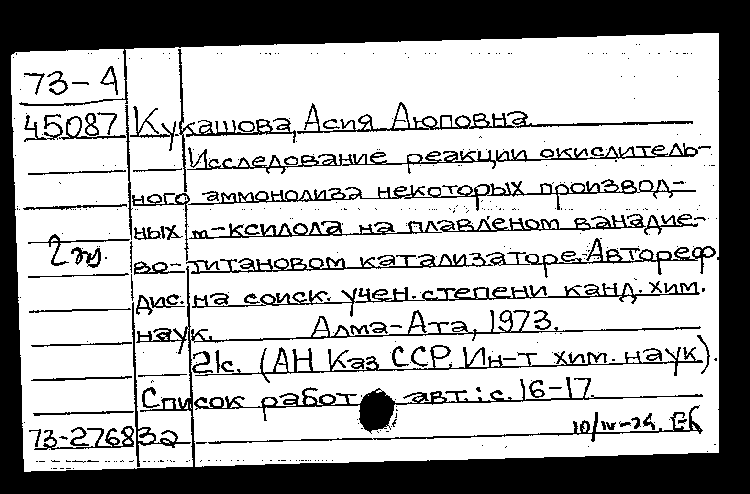 73-А
45087 Кукашова, Асия Аюповна
Исследование реакции окислитель-
ного аммонолиза некоторых производ-
ных m-ксилола на плавленом ванадие-
2 экз. во-титановом катализаторе. Автореф.
дис. на соиск. учен. степени канд. хим.
наук. Алма-Ата, 1973.
21с. (АН Каз ССР. Ин-т хим. наук).
Список работ авт.: с. 16-17
73-27683а